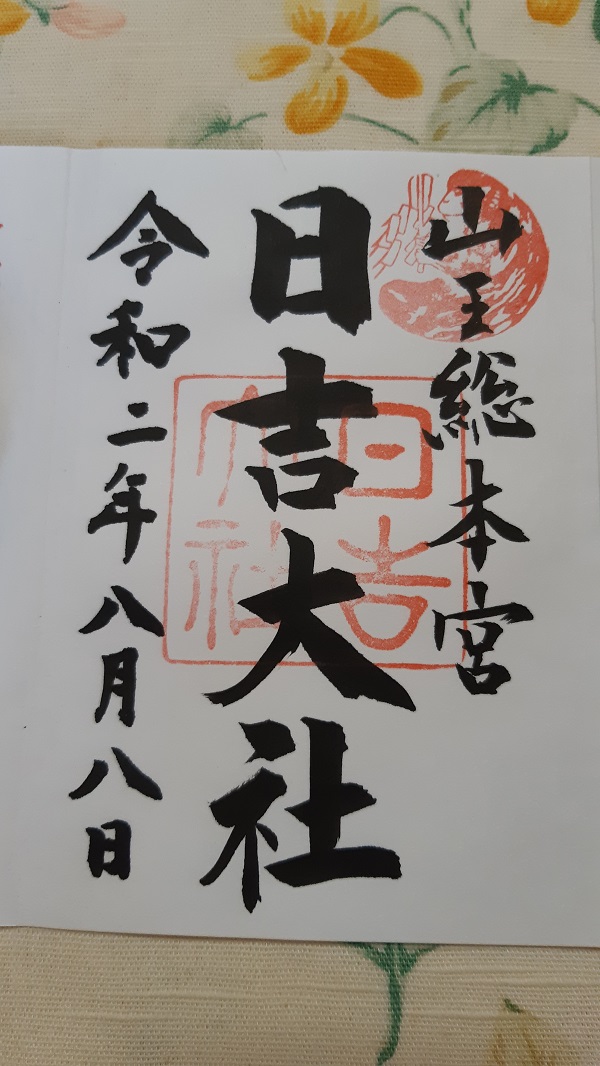 山王総本宮
日吉大社
令和二年八月八日
日吉
大社